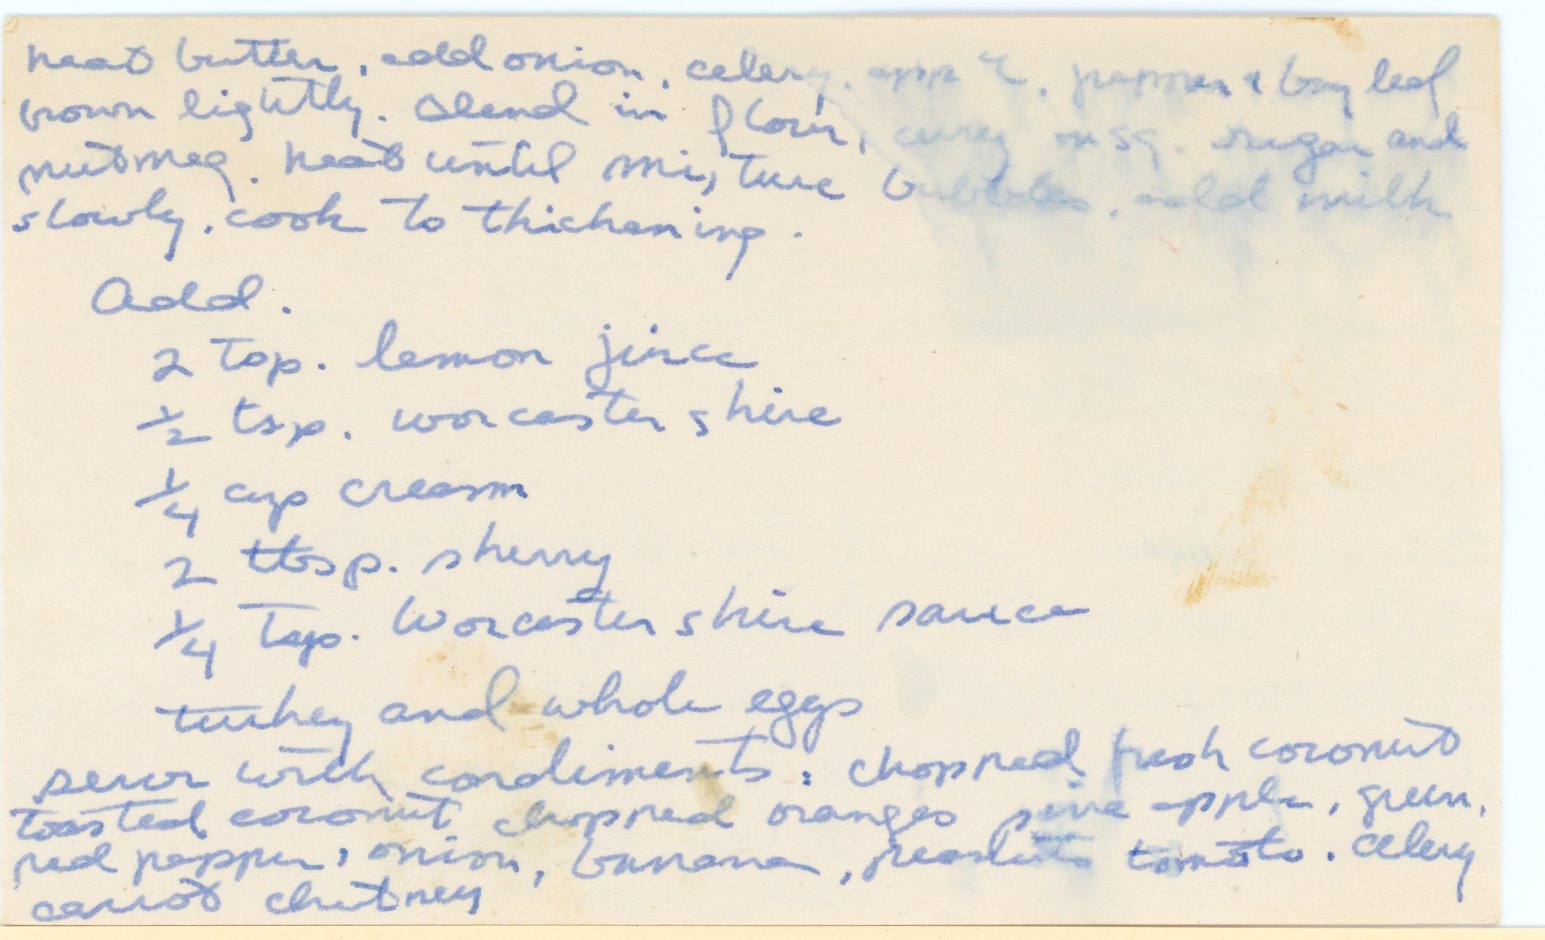 heat butter, add onion, celery, apple, pepper & bay leaf
brown lightly. Blend in flour, curry msg. sugar and
nutmeg. heat until mixture bubbles, add milk
slowly. cook to thickening.
Add.
2 Tsp. lemon jiuce
1/2 tsp. worcastershire
1/4 cup cream
2 tbsp. sherry
1/4 Tsp. Worcastershire sauce
turkey and whole eggs
serve with condiments: chopped fresh coconut
toasted coconut, chopped oranges pine apple, green,
red pepper, onion, banana, peanuts tomato. celery
carrot chutney